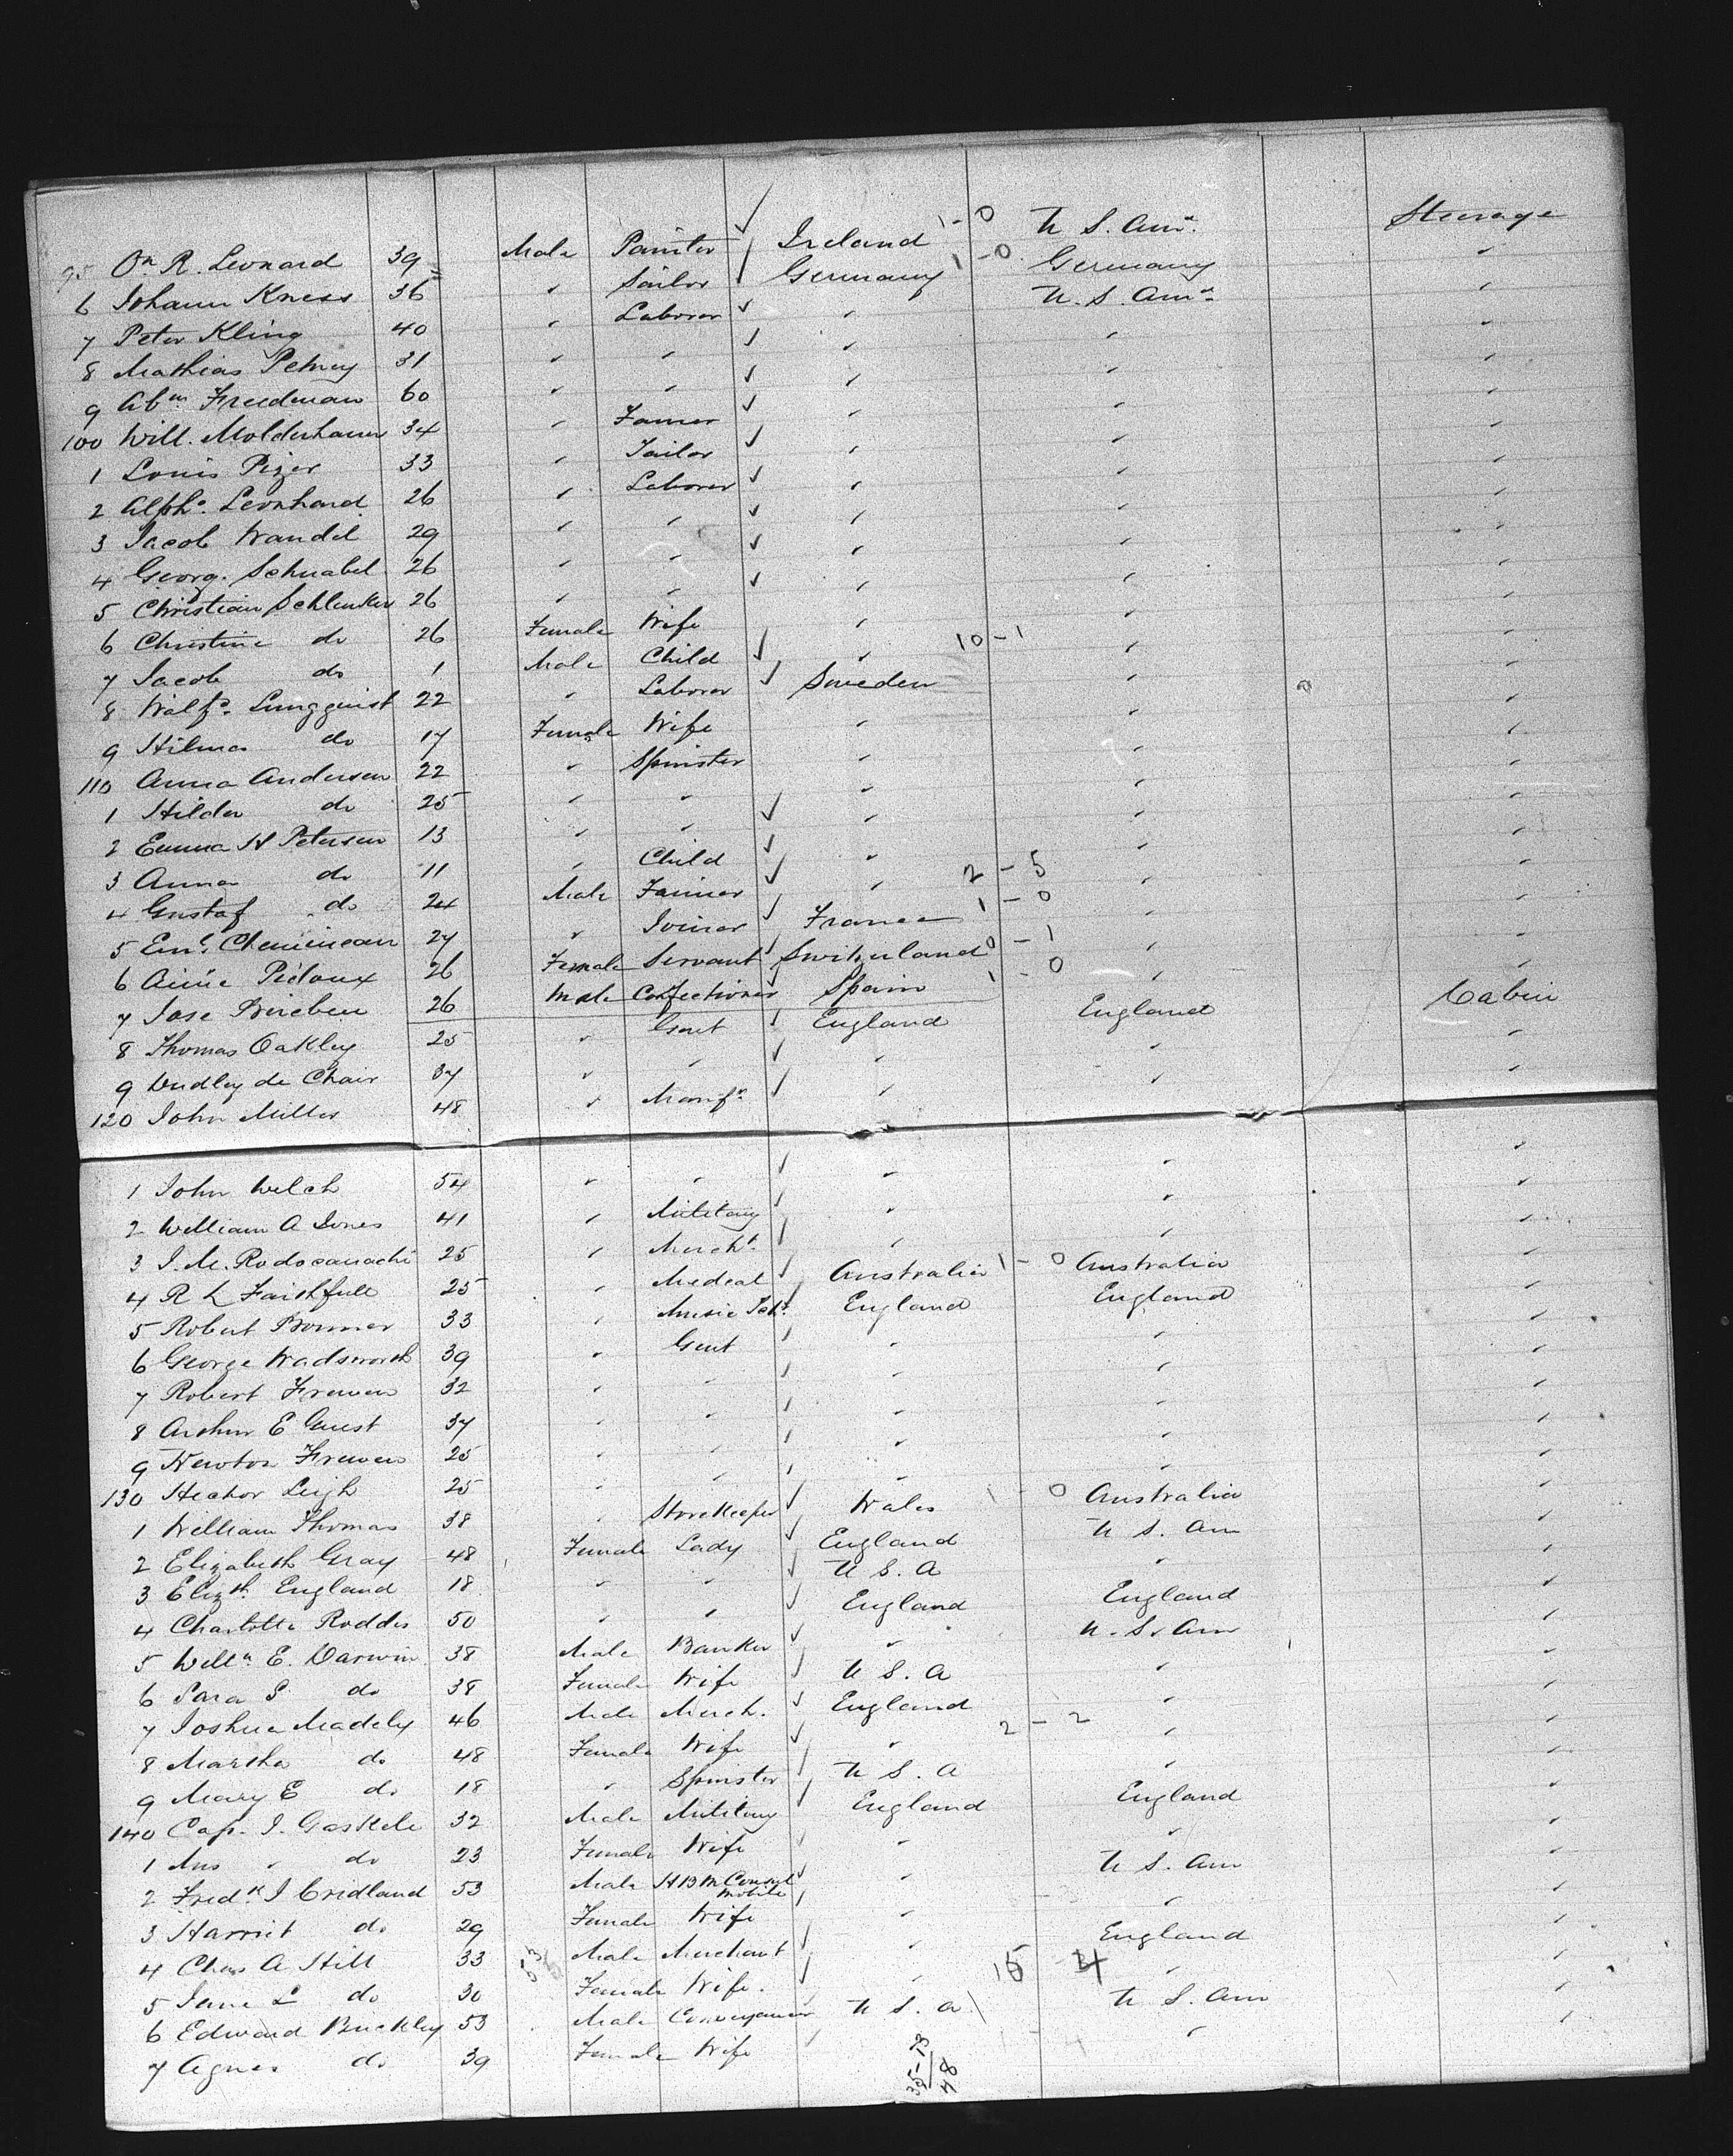 95 On R. Leonard 39 Male Painter Ireland 1-0 U S. Am. Steerage
6 Johann Kness 36 " Sailor Germany 1-0 Germany "
7 Peter Kling 40 " Laborer " U. S. Am. "
8 Mathias Petney 31 " " " " "
9 Abm Freedman 60 " " " " "
100 Will. Moldenhauer 34 " Farmer " " "
1 Louis Pizer 33 " Tailor " " "
2 Alph. Leonhard 26 " Laborer " " "
3 Jacob Wandel 29 " " " " "
4 Georg. Schnabel 26 " " " " "
5 Christian Schlenker 26 " " " " "
6 Christine do 26 Female Wife " " "
7 Jacob do 1 Male Child " 10-1 " "
8 Walf. Lungquist 22 " Laborer Sweden " "
9 Hilma do 17 Female Wife " " "
110 Anna Andersen 22 " Spinster " " "
1 Hilda do 25 " " " " "
2 Emma H Petersen 13 " " " " "
3 Anna do 11 " Child " " "
4 Gustaf do 24 Male Farmer " 2-5 " "
5 Eml. Chemineau 27 " Joiner France 1-0 " "
6 Aimée Pidoux 26 Female Servant Switzerland 0-1 " "
7 Jose 26 Male Confectioner Spain 1-0 " "
8 Thomas Oakley 25 " Gent England England Cabin
9 Dudley de Chair 37 " " " " "
120 John Miller 48 " Manfr. " " "
1 John Welch 54 " " " " "
2 William A Jones 41 " Military " " "
3 J. M. Rodocanachi 25 " Mercht. " " "
4 R L Faithfull 25 " Medcal Australia 1-0 Australia "
5 Robert Bonner 33 " Music Tchr. England England "
6 George Wadsworth 39 " Gent " " "
7 Robert Frewen 32 " " " " "
8 Arthur E Guest 37 " " " " "
9 Newton Frewen 25 " " " " "
130 Hector Leigh 25 " " " " "
1 William Thomas 38 " Storekeeper Wales 1-0 Australia "
2 Elizabeth Gray 48 Female Lady England U S. Am "
3 Elizth. England 18 " " U S. A " "
4 Charlotte Roddis 50 " " England England "
5 Willm E. Darwin 38 Male Banker " U. S. Am "
6 Sara S do 38 Female Wife U S. A " "
7 Joshua Madely 46 Male Merch. England " "
8 Martha do 48 Female Wife " 2-2 " "
9 Mary E do 18 " Spinster U S. A " "
140 Cap. J. Gaskele 32 Male Military England England "
1 Mrs " do 23 Female Wife " " "
2 Fredk J Cridland 53 Male H B M Consul Mobile " U S. Am "
3 Harriet do 29 Female Wife " " "
4 Chas A Hill 33 53 Male Merchant " England "
5 Jane L do 30 Female Wife. " 15 4 " "
6 Edward Buckley 53 Male Conveyancer U S. A U S. Am "
7 Agnes do 39 Female Wife " "
35-13
48